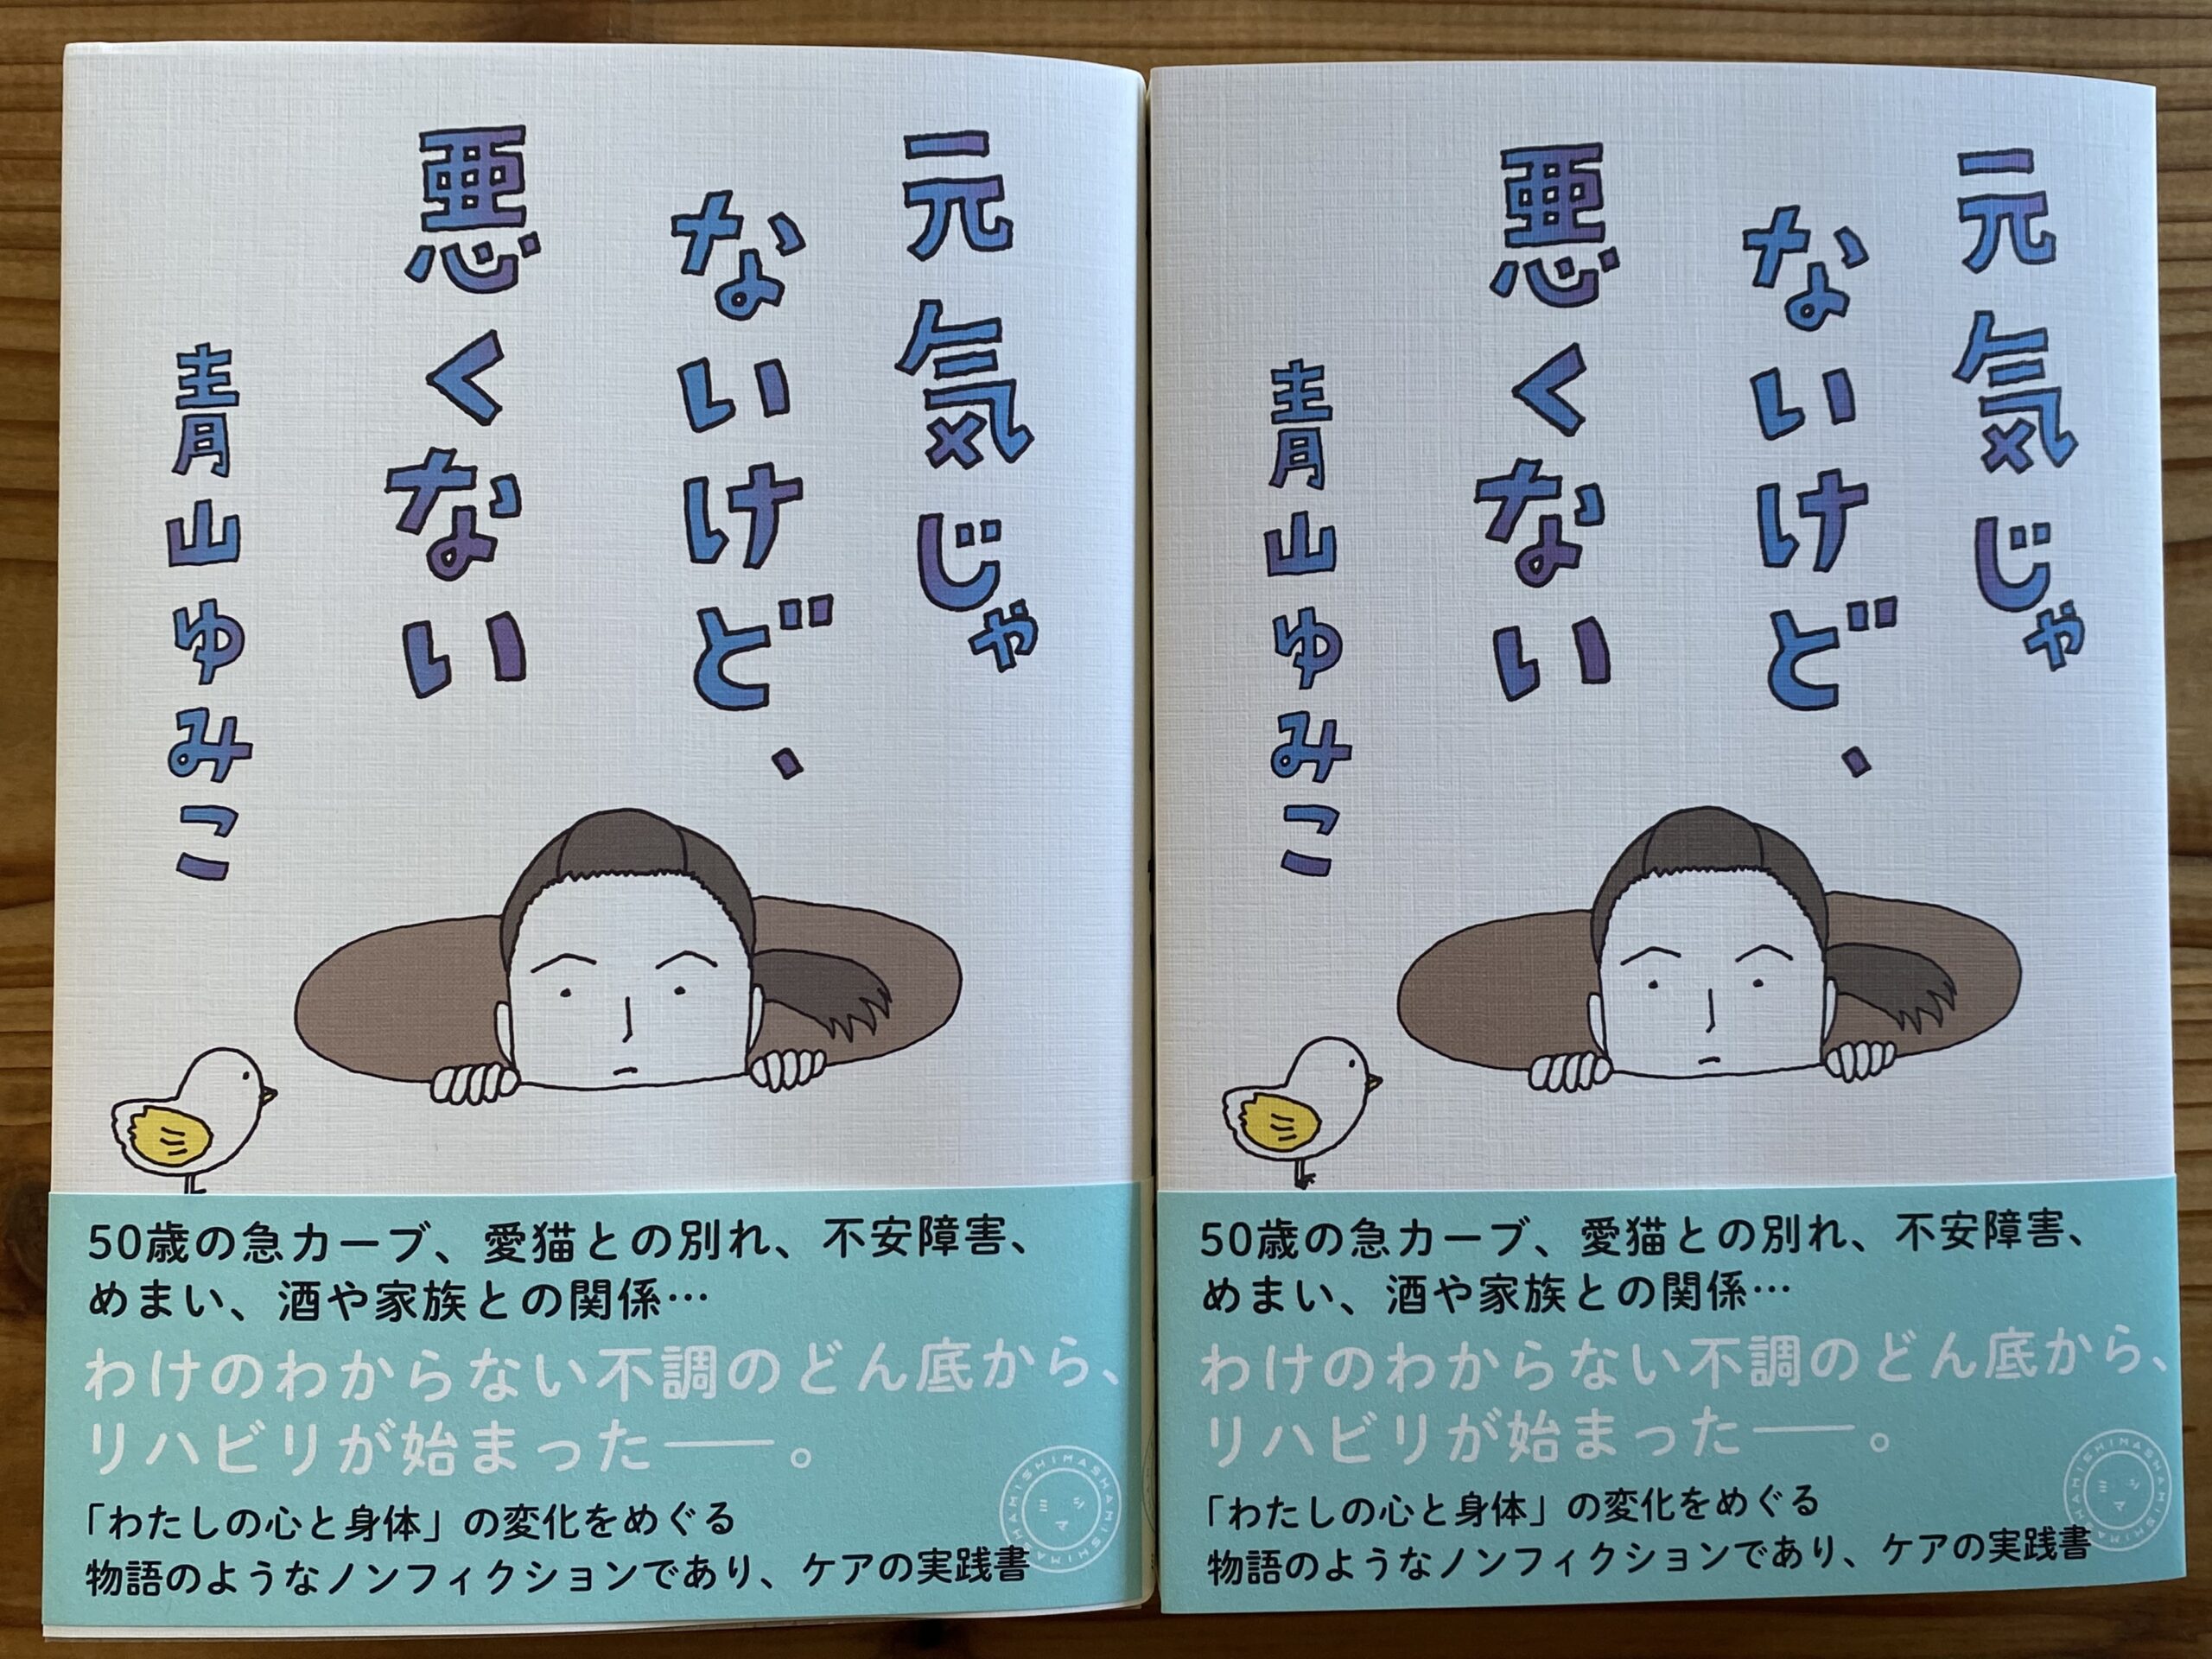 元気じゃ
ないけど、
悪くない
青山ゆみこ
50歳の急カーブ、愛猫との別れ、不安障害、
めまい、酒や家族との関係…
わけのわからない不調のどん底から、
リハビリが始まった——。
「わたしの心と身体」の変化をめぐる
物語のようなノンフィクションであり、ケアの実践書
MISHIMASHAMISHIMASHA
ミシマ
元気じゃ
ないけど、
悪くない
青山ゆみこ
50歳の急カーブ、愛猫との別れ、不安障害、
めまい、酒や家族との関係…
わけのわからない不調のどん底から、
リハビリが始まった——。
「わたしの心と身体」の変化をめぐる
物語のようなノンフィクションであり、ケアの実践書
MISHIMASHAMISHIMASHA
ミシマ